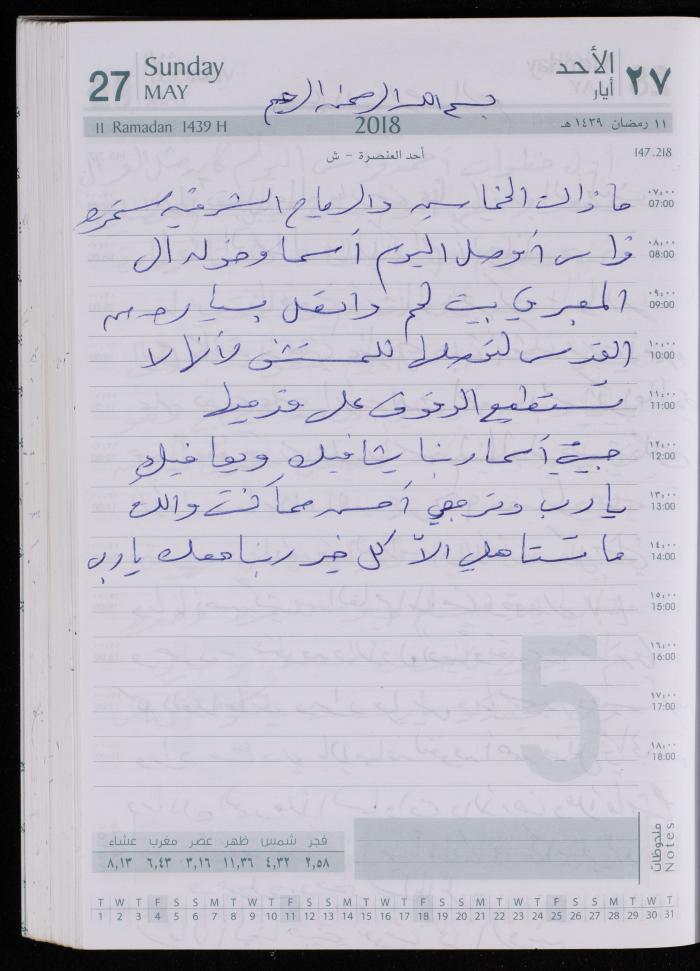 27 Sunday MAY
الأحد ٢٧ أيار
بسم الله الرحمن الرحيم
11 Ramadan 1439 H 2018 ١١ رمضان ١٤٣٩ هـ
أحد العنصرة - ش 147.218
٠٧,٠٠ 07:00 ما زالت الخماسين والرياح الشرقية مستمرة
٠٨,٠٠ 08:00 فراس أوصل اليوم أسما وخوله ال
٠٩,٠٠ 09:00 المعبر في بيت لحم وانتقل بسيارة من
١٠,٠٠ 10:00 القدس لتوصلها للمستشفى لأنها لا
١١,٠٠ 11:00 تستطيع الوقوف على قدميها
١٢,٠٠ 12:00 حبيبتي أسما ربنا يشافيك ويعافيك
١٣,٠٠ 13:00 يا رب وترجعي أحسن مما كنت والله
١٤,٠٠ 14:00 ما تستاهلي الاّ كل خير ربنا معك يا رب
١٥,٠٠ 15:00
١٦,٠٠ 16:00
١٧,٠٠ 17:00
١٨,٠٠ 18:00
5
فجر شمس ظهر عصر مغرب عشاء
٢,٥٨ ٤,٣٢ ١١,٣٦ ٣,١٦ ٦,٤٣ ٨,١٣
ملحوظات
Notes
T W T F S S M T W T F S S M T W T F S S M T W T F S S M T W T
1 2 3 4 5 6 7 8 9 10 11 12 13 14 15 16 17 18 19 20 21 22 23 24 25 26 27 28 29 30 31